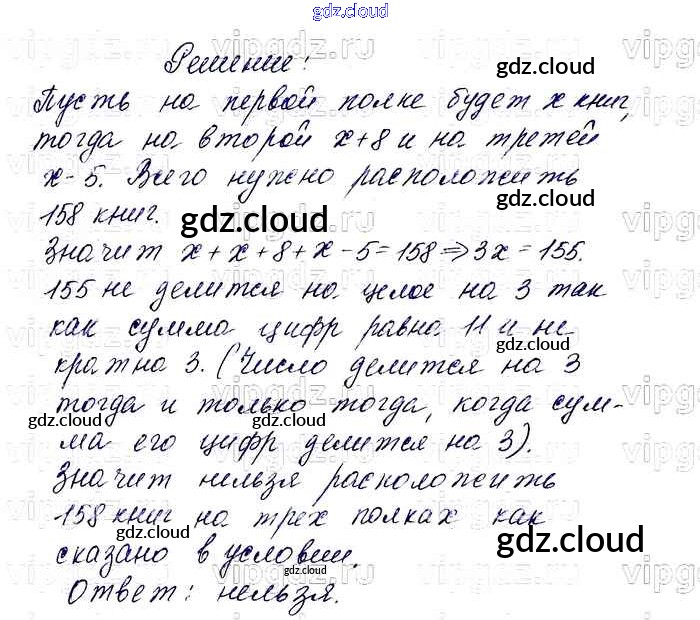 gdz.cloud
Решение:
gdz.cloud
Пусть на первой полке будет x книг,
тогда на второй x+8 и на третей
x-5. Всего нужно расположить
158 книг.
gdz.cloud
Значит x+x+8+x-5=158⇒3x=155.
155 не делится на целое на 3 так
как сумма цифр равна 11 и не
gdz.cloud
кратна 3. (Число делится на 3
тогда и только тогда, когда сум-
gdz.cloud
gdz.cloud
ма его цифр делится на 3).
Значит нельзя расположить
158 книг на трех полках как
gdz.cloud
сказано в условии.
gdz.cloud
Ответ: нельзя.